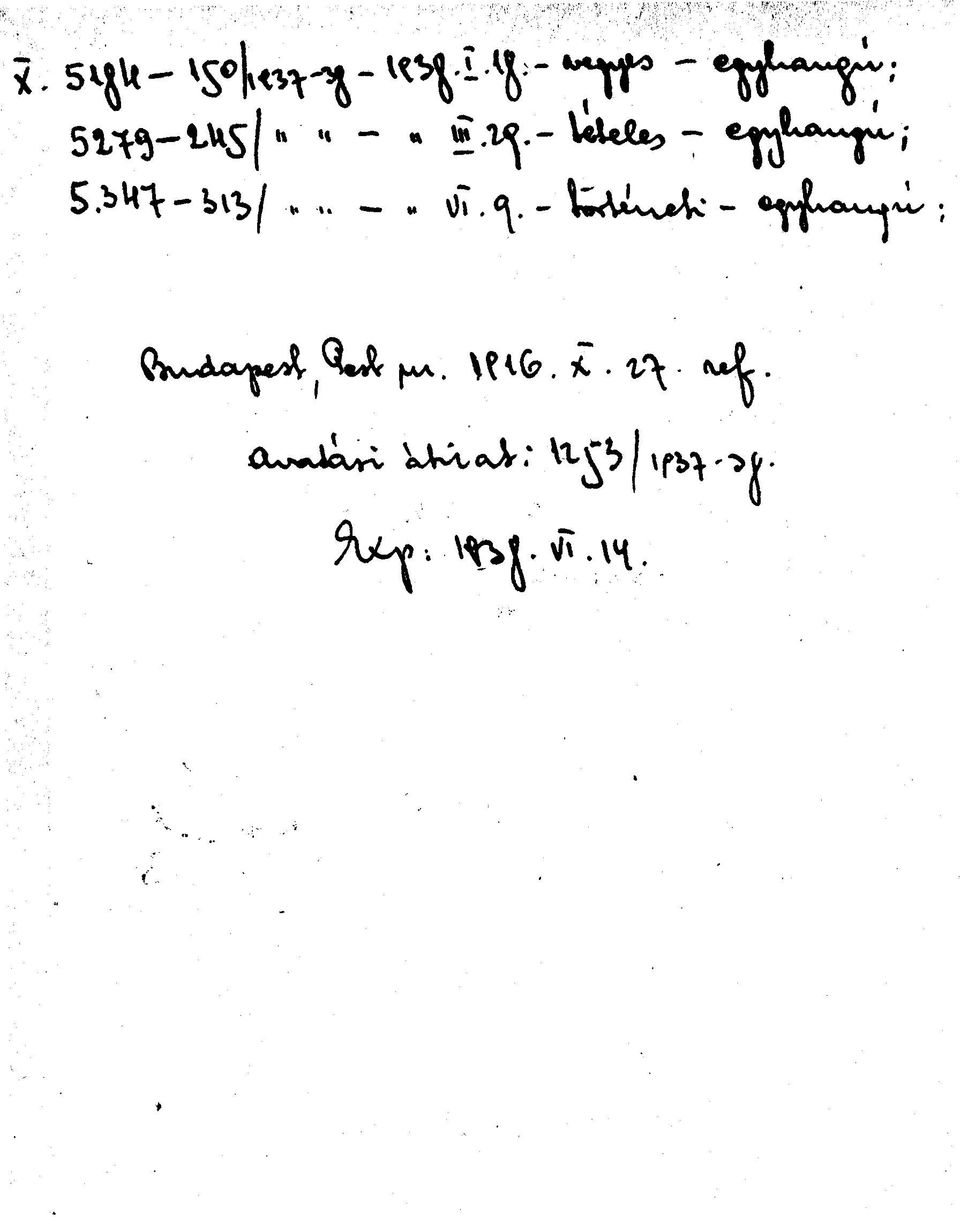 X. 5184 - 150/1937-38 - 1938. I. 18. - vegyes - egyhangú;
5279 - 245/ " " - " III. 29. - tételes - egyhangú;
5.347 - 313/ " " - " VI. 9. - történeti - egyhangú;
Budapest, Pest m. 1916. X. 27. ref.
avatási átirat: 1253/1937-38.
Exp: 1938. VI. 14.